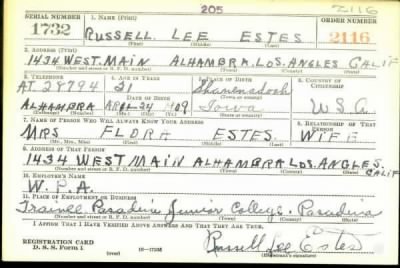 205
2116
SERIAL NUMBER 1. NAME (Print) ORDER NUMBER
1732 RUSSELL LEE ESTES 2116
(First) (Middle) (Last)
2. ADDRESS (Print)
1434 WEST. MAIN ALHAMBRA. LOS. ANGLES CALIF
(Number and street or R. F. D. number) (Town) (County) (State)
3. TELEPHONE 4. AGE IN YEARS 5. PLACE OF BIRTH 6. COUNTRY OF CITIZENSHIP
AT. 28794 31
DATE OF BIRTH (Town or county)
ALHAMBRA 24 1909 Iowa U.S.A.
(Exchange) (Number) (Mo.) (Day) (Yr.) (State or country)
7. NAME OF PERSON WHO WILL ALWAYS KNOW YOUR ADDRESS 8. RELATIONSHIP OF THAT PERSON
MRS FLORA ESTES. WIFE
(Mr., Mrs., Miss) (First) (Middle) (Last)
9. ADDRESS OF THAT PERSON
1434 WEST MAIN ALHAMBRA LOS. ANGLES. CALIF
(Number and street or R. F. D. number) (Town) (County) (State)
10. EMPLOYER'S NAME
W.P.A.
11. PLACE OF EMPLOYMENT OR BUSINESS
Trainee Pasadena Junior College. Pasadena
(Number and street or R. F. D. number) (Town) (County) (State)
I AFFIRM THAT I HAVE VERIFIED ABOVE ANSWERS AND THAT THEY ARE TRUE.
REGISTRATION CARD
D. S. S. Form 1 Russell Lee Estes
(Registrant's signature)